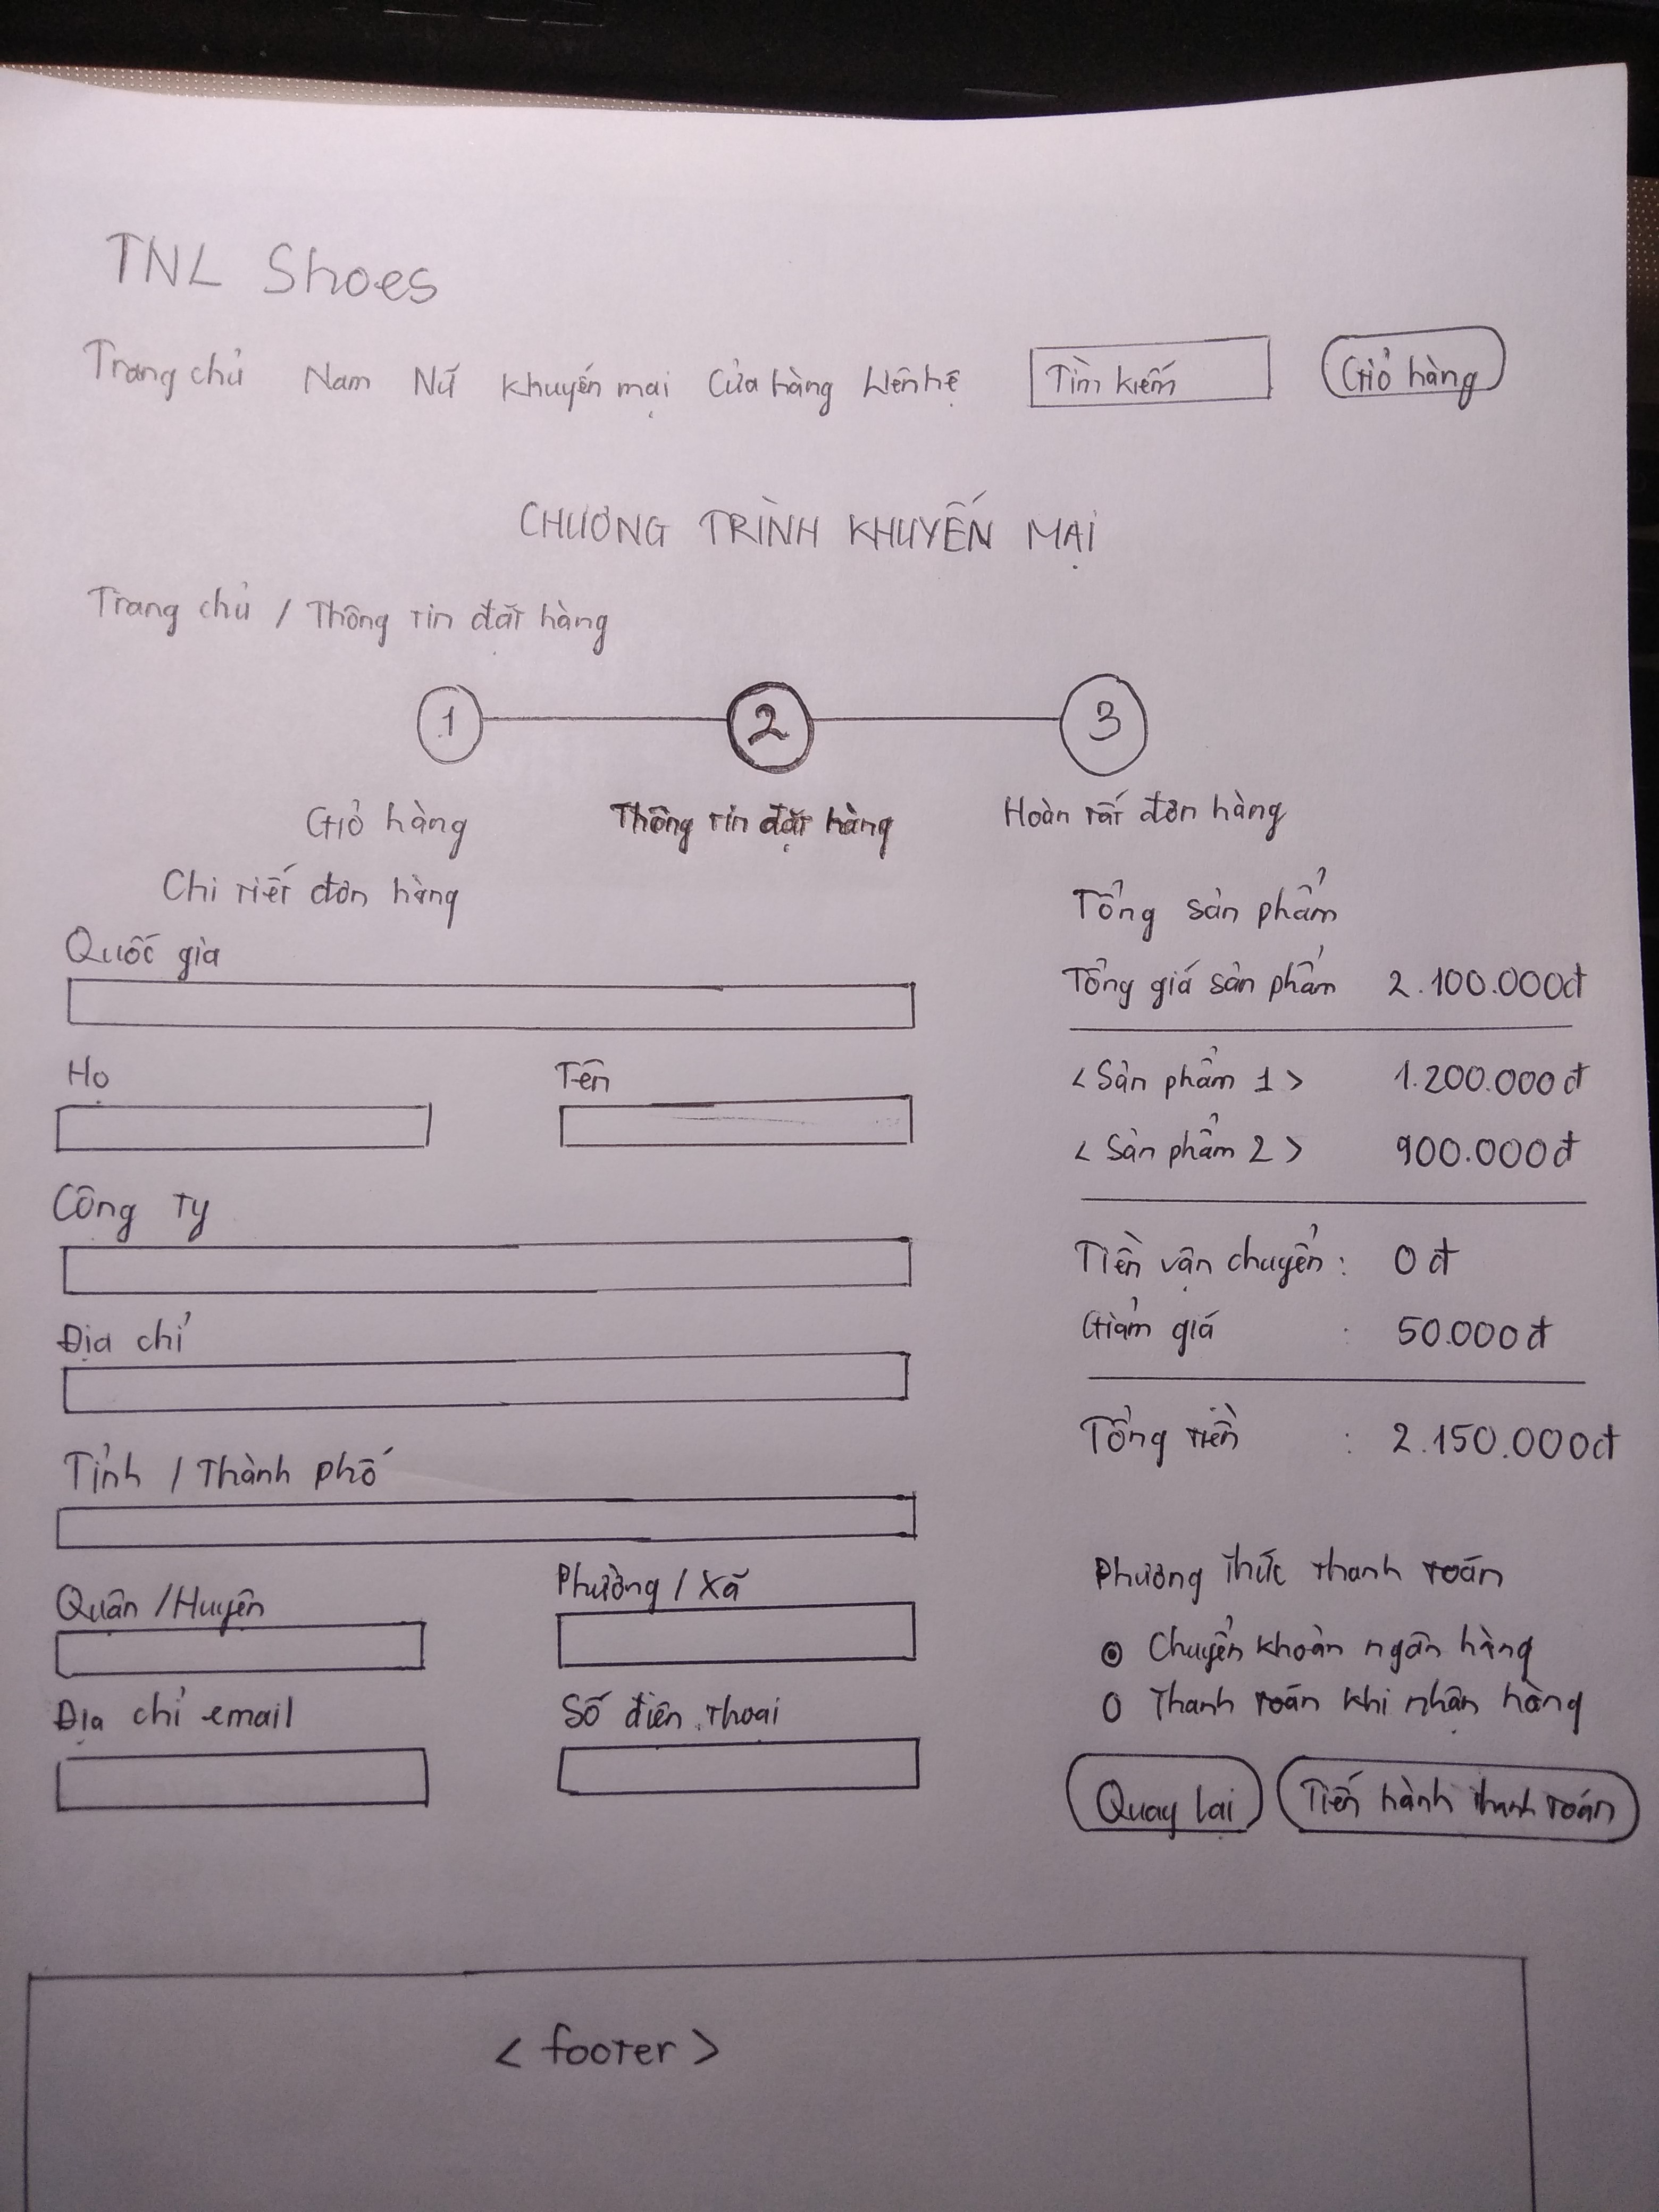 TNL Shoes
Trang chủ Nam Nữ Khuyến mại Cửa hàng Liên hệ Tìm kiếm Giỏ hàng
CHƯƠNG TRÌNH KHUYẾN MẠI
Trang chủ / Thông tin đặt hàng
1 2 3
Giỏ hàng Thông tin đặt hàng Hoàn tất đơn hàng
Chi tiết đơn hàng
Quốc gia
Họ Tên
Công ty
Địa chỉ
Tỉnh / Thành phố
Quận / Huyện Phường / Xã
Địa chỉ email Số điện thoại
Tổng sản phẩm
Tổng giá sản phẩm 2.100.000đ
< Sản phẩm 1 > 1.200.000đ
< Sản phẩm 2 > 900.000đ
Tiền vận chuyển : 0đ
Giảm giá : 50.000đ
Tổng tiền : 2.150.000đ
Phương thức thanh toán
Chuyển khoản ngân hàng
Thanh toán khi nhận hàng
Quay lại Tiến hành thanh toán
< footer >